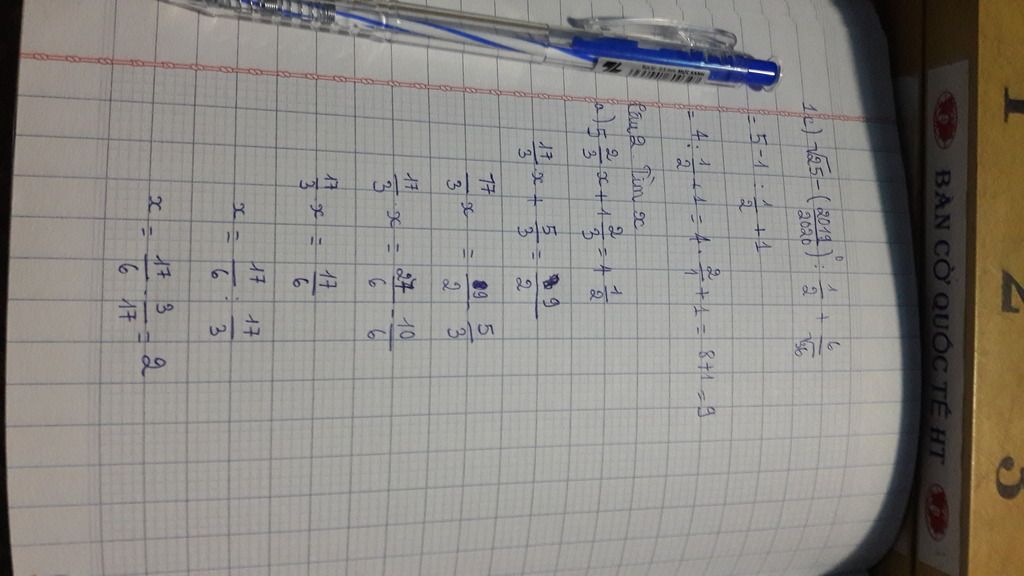 1c) √25 - (2019/2020)⁰ : 1/2 + 6/√36
= 5 - 1 : 1/2 + 1
= 4 : 1/2 + 1 = 4 . 2/1 + 1 = 8 + 1 = 9
Câu 2 Tìm x
a) 5 2/3 x + 1 2/3 = 4 1/2
17/3 x + 5/3 = 9/2
17/3 x = 9/2 - 5/3
17/3 x = 27/6 - 10/6
17/3 x = 17/6
x = 17/6 : 17/3
x = 17/6 . 3/17 = 2
BÀN CỜ QUỐC TẾ HT
1
2
3